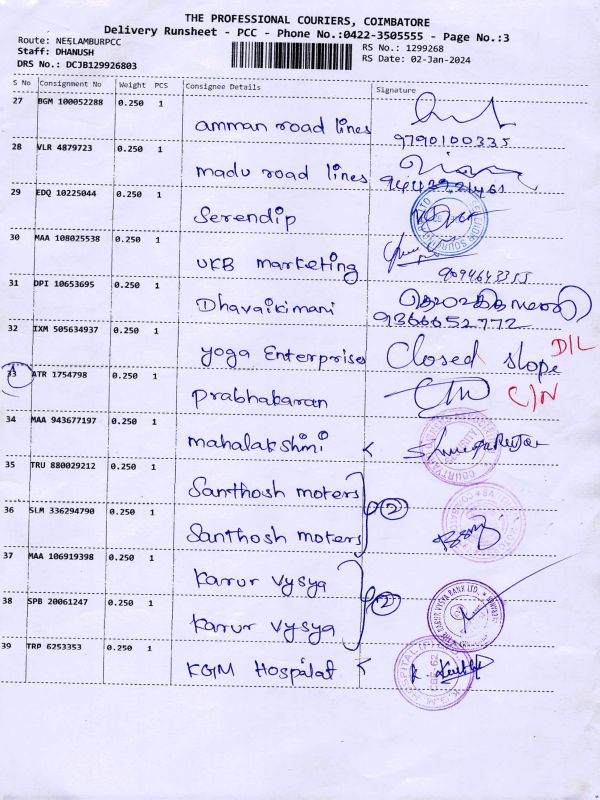 THE PROFESSIONAL COURIERS, COIMBATORE
Delivery Runsheet - PCC - Phone No.:0422-3505555 - Page No.:3
Route: NEELAMBURPCC
Staff: DHANUSH
DRS No.: DCJB129926803
RS No.: 1299268
RS Date: 02-Jan-2024
S No Consignment No Weight PCS Consignee Details Signature
27 BGM 100052288 0.250 1 amman road lines 9790100335
28 VLR 4879723 0.250 1 madu road lines
29 EDQ 10225044 0.250 1 Serendip
30 MAA 108025538 0.250 1 UKB marketing 9094643355
31 DPI 10653695 0.250 1 Dhavaikimani
9366652772
32 IXM 505634937 0.250 1 yoga Enterprises Closed slope D/L
33 ATR 1754798 0.250 1 prabhakaran C/N
34 MAA 943677197 0.250 1 mahalakshmi
35 TRU 880029212 0.250 1 Santhosh moters
36 SLM 336294790 0.250 1 Santhosh moters 2
37 MAA 106919398 0.250 1 Karur vysya
38 SPB 20061247 0.250 1 Karur vysya 2
39 TRP 6253353 0.250 1 KGM Hospital